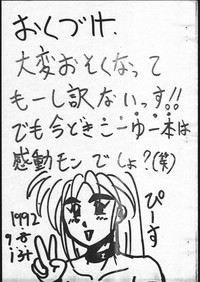 おくづけ.
大変おそくなって
もーし訳ないっす!!
でも今どきこーゆー本は
感動モンでしょ?(笑)
ぴーす
1992
9.8